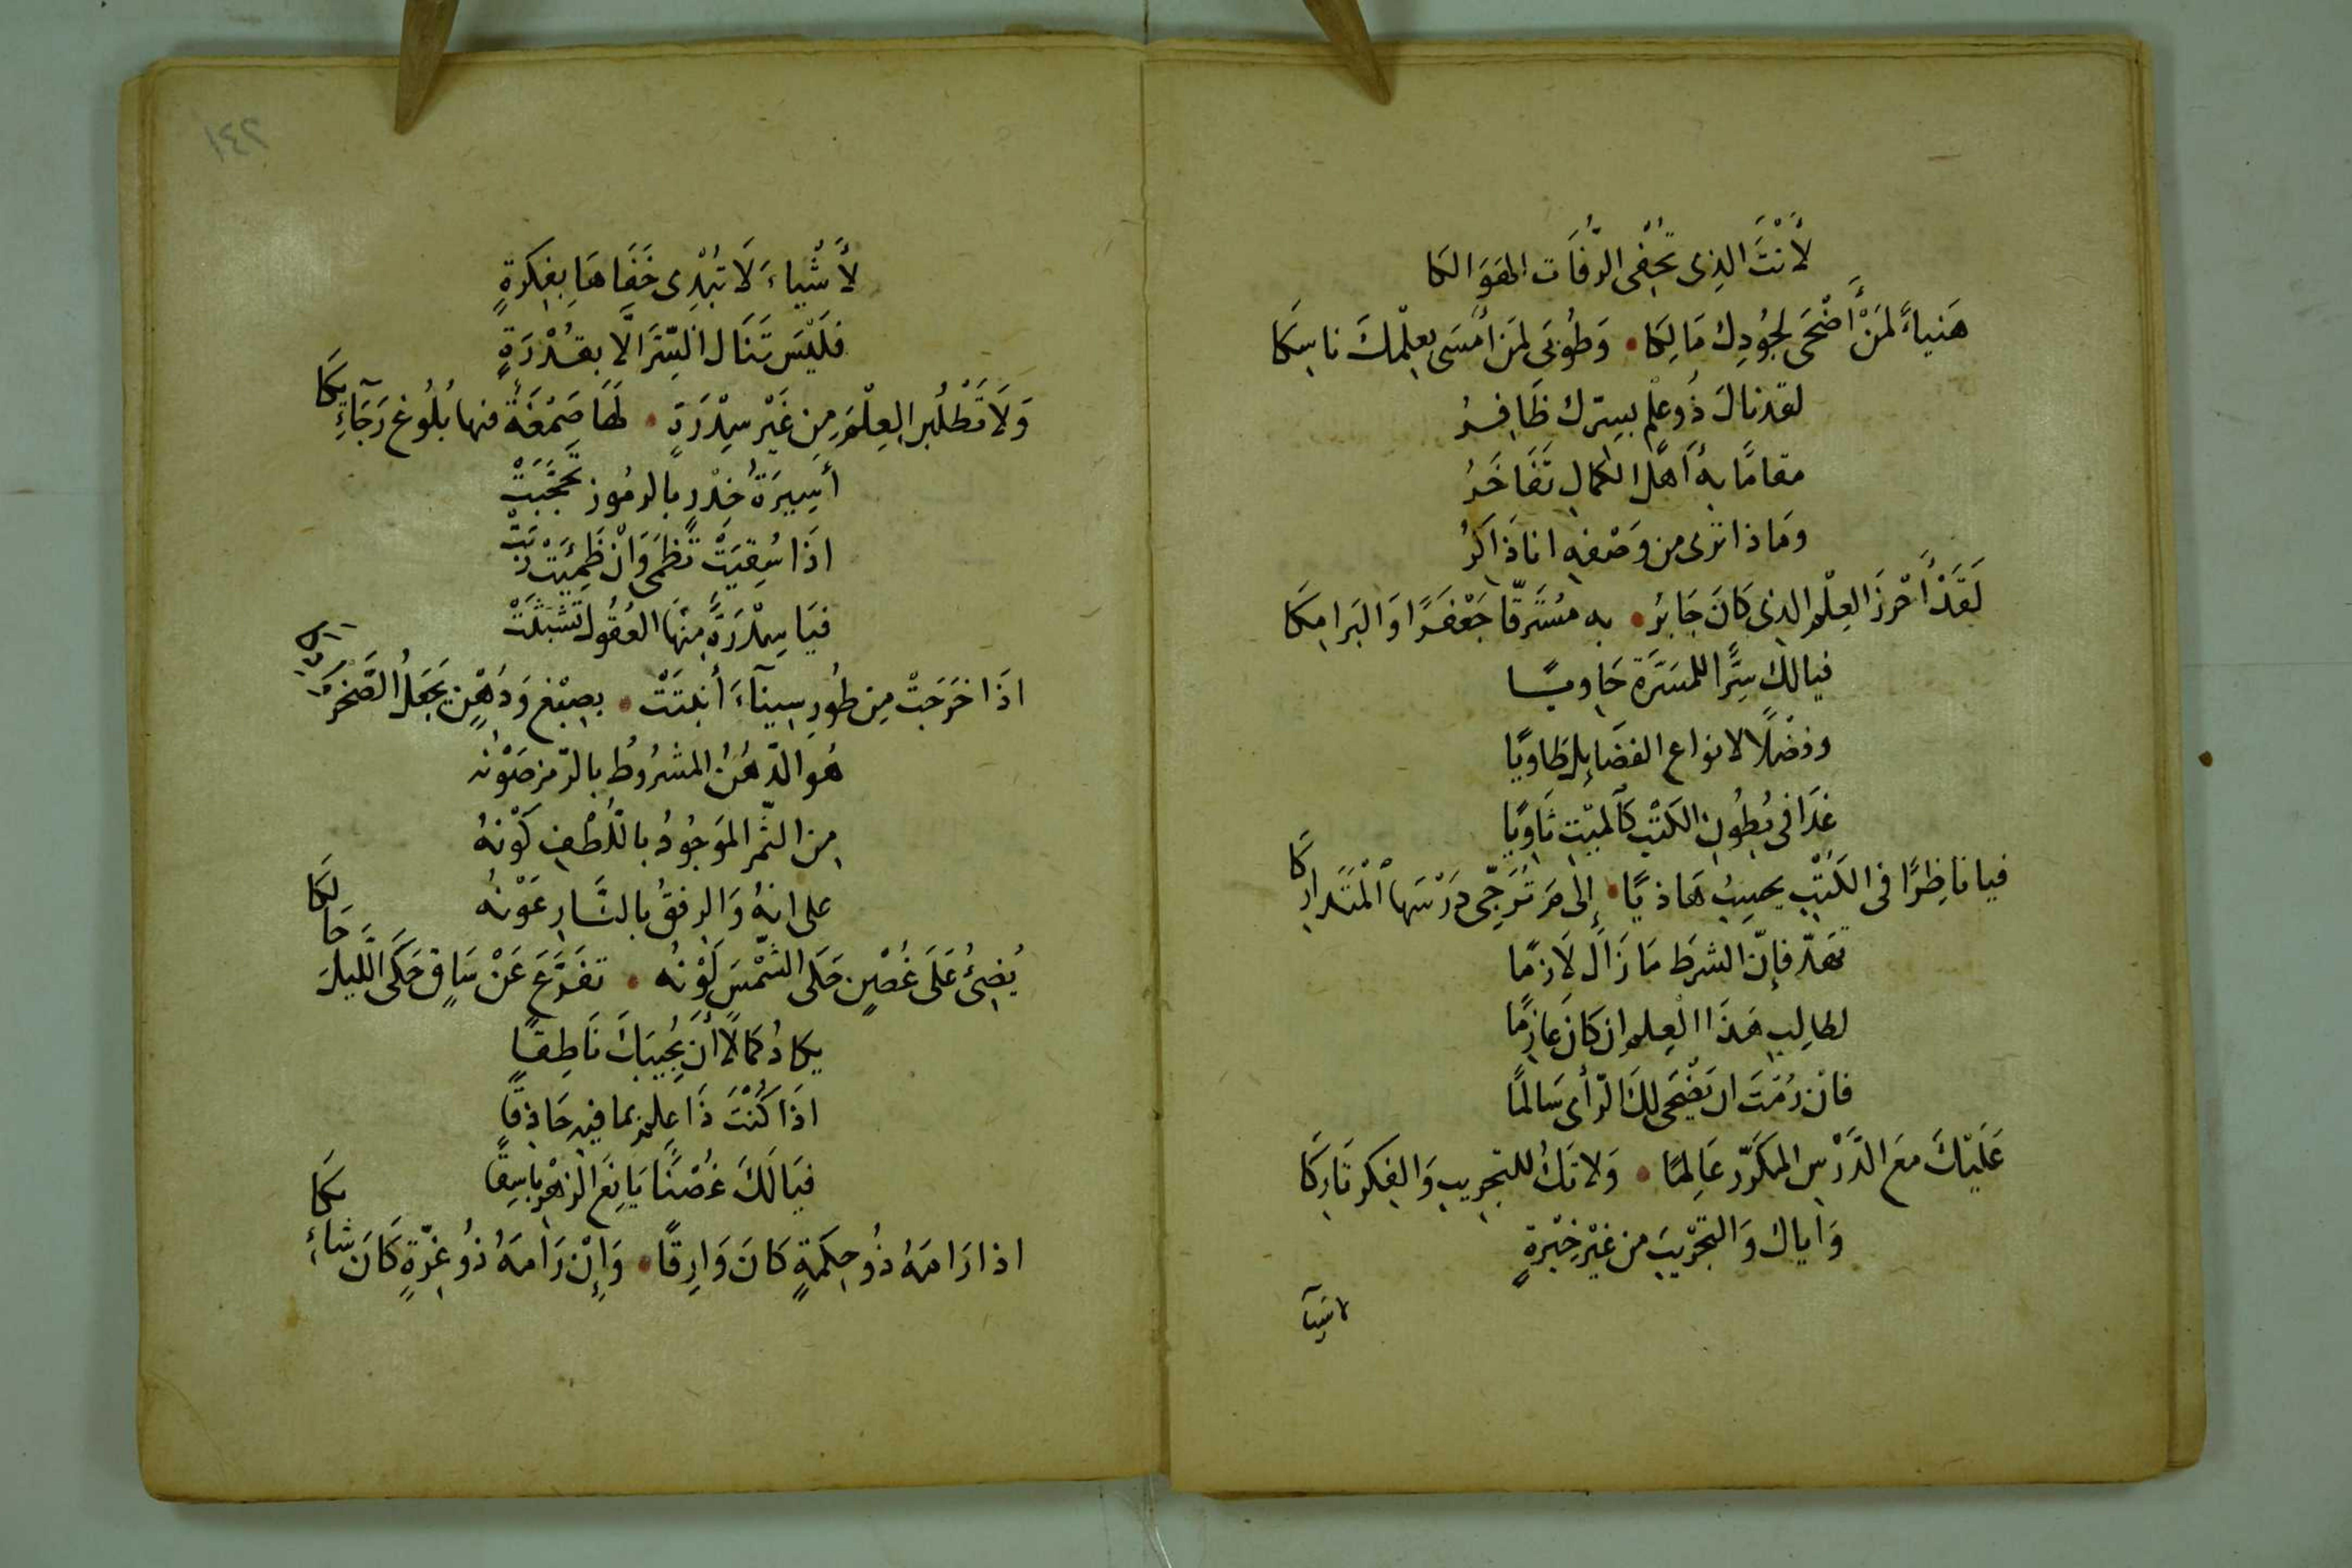 لأَنْتَ الذى تُحْفى الرُّفَات الهَوَالكا
هَنياءً لمَنْ أَضْحَى لجُودِك مَالِكَا • وَطُوبَى لمَن اَمْسَى بعِلْمكَ ناسِكَا
لقد نالَ ذُو عِلْم بسِترك ظَافِرُ
مقامًا به أَهلُ الكمالِ تَفَاخَرُ
ومَاذا ترى من وَصْفه انا ذَاكرُ
لَقَدْ أَحْرزَ العِلْم الذى كَانَ جَابرُ • به مُسَرِّقًا جَعْفَرًا وَالبَرامكَا
فيالك سِرًّا للمسَرَّة حَاوِيًا
وفضْلًا لانواع الفضَايل طَاويًا
غدَا فى بُطُون الكتْب كالميْت ثَاويًا
فيا ناظِرًا فى الكُتْب يحسِبُ هَاذيًا • إلى مَ تُرَجّى دَرْسَها المُتَداركا
تَهَدَّ فإنّ الشرطَ مَا زَالَ لَازمًا
لطالِبِ هَذَا العِلم ان كَان عَازمًا
فان رُمْتَ ان يَضْحَى لكَ الرّأى سَالمًا
عَلَيْكَ معَ الدَّرْس المكَرَّر عَالِمًا • وَلا تَكُ للتجريبِ وَالفِكر تَارِكَا
وَاياك وَالتجْريبَ من غيْر خِبْرةٍ
لاشيآ
١٤٢
لأَشْياءَ لَا تُبْدِى خَفَاهَا بفِكرةٍ
فلَيْسَ تَنَال السِّرَّ الّا بقُدْرَةٍ
وَلَا تَطْلُب العِلْمَ مِن غَيْر سِدْرَةٍ • لَهَا صَمْغَةٌ منها بُلُوغ رَجَآئِكَا
أَسِيرَةُ خِدْرٍ بالرمُوز تَحَجَّبَتْ
اذَا سُقِيَتْ تَظمَى وَانْ ظَمِيَتْ رَبَتْ
فيَا سِدْرَةً مِنْهَا العُقُول تشَتَّتَتْ
اذَا خَرَجَتْ مِن طُور سِينآءَ أَنبتَتْ • بصِبْغ وَدُهْنٍ يَجْعَلُ الصَّخْرَ
هُو الدّهُنُ المشرُوطُ بالرّمز صَوْنُه
من الثّمر المَوجُودُ باللُّطْفِ كَوْنهُ
على انهُ وَالرفقُ بالنَّار عَوْنُه
يُضِئُ عَلَى غُصْنٍ حَكَى الشَّمْسَ لَوْنُه • تفَرَّعَ عَنْ سَاقٍ حَكَى اللَّيلَ حَالِكَا
يكادُ كمَالًا أَن يُجيبَكَ نَاطِقًا
اذَا كُنْتَ ذَا عِلمٍ بما فيهِ حَاذقًا
فيَا لَكَ غُصْنًا يَانِعَ الزهْر بَاسِقًا
اذا رَامَهُ ذُو حِكمَةٍ كَانَ وَارِقًا • وَإِنْ رَامهُ ذُو غِرّةٍ كَانَ شائكَا